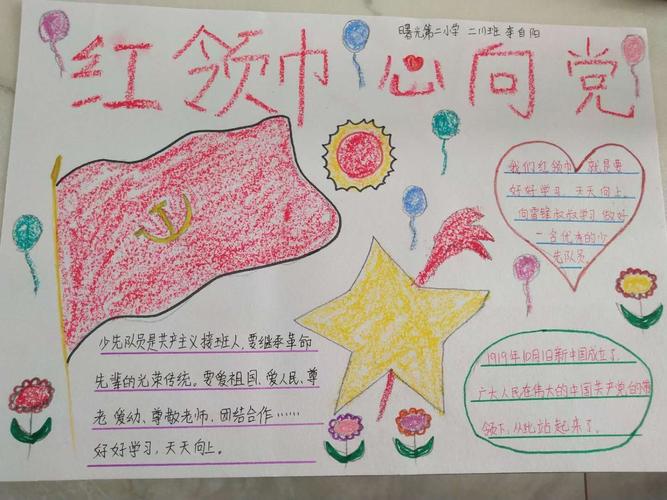 曙光第二小学 二川班 李自阳
红领巾心向党
我们红领巾,就是要
好好学习,天天向上。
向雷锋叔叔学习 做好
一名优秀的少
先队员。
少先队员是共产主义接班人,要继承革命
先辈的光荣传统。要爱祖国、爱人民、尊
老爱幼、尊敬老师,团结合作……
好好学习,天天向上。
1919年10月1日新中国成立了,
广大人民在伟大的中国共产党的带
领下,从此站起来了。